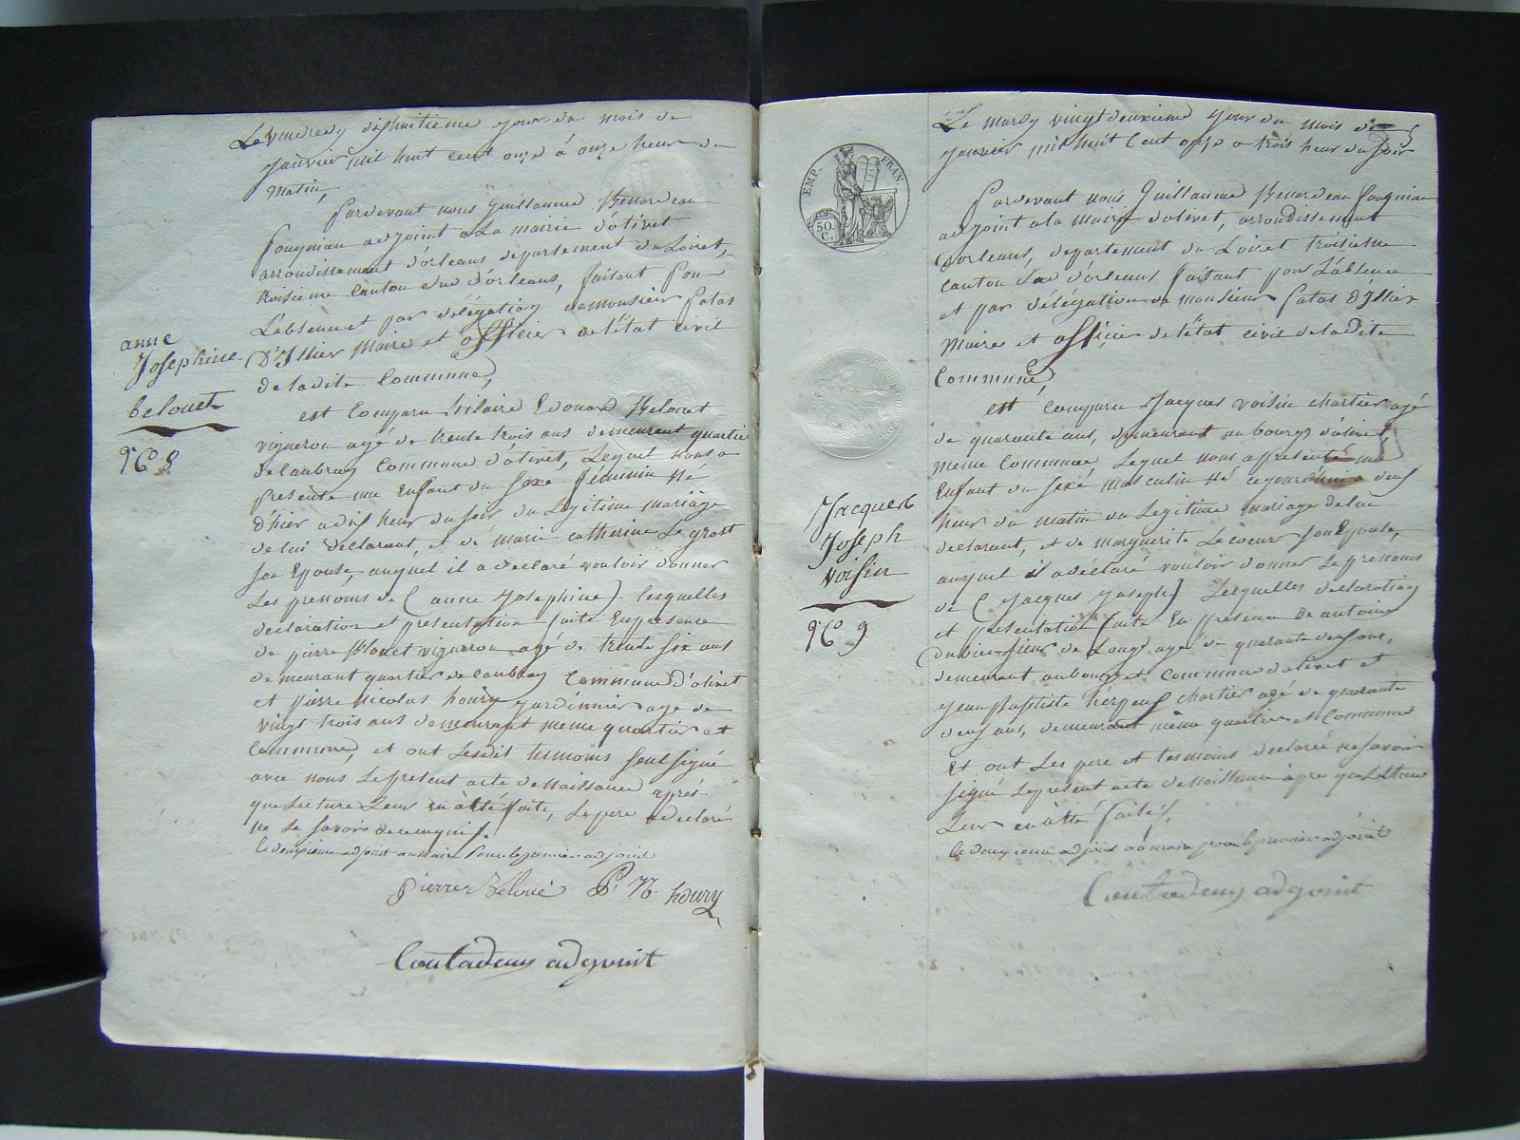 Le vendredy dixhuitieme jour du mois de
janvier mil huit cent onze à onze heur du
matin,
Pardevant nous Guillaume Henardeau
Pougniau adjoint a La mairie d'olivet
arrondissement d'orleans departement du Loiret,
troisieme Canton sud d'orleans, faisant pour
L'absence et par délégation de monsieur
D'Illier Maire et officier de l'état civil
de la dite Commune,
est Comparu hilaire Edouard Belouet
vigneron agé de trente trois ans demeurent quartier
de Caubray Commune d'olivet, Lequel nous a
présenté une Enfant du Sexe féminin Né
d'hier a dix heur du soir du Legitime mariage
de lui declarant, et de marie catherine Le grost
son Epouse, auquel il a declaré vouloir donner
Les prenoms de (anne Josephine) lesquelles
declaration et presentation faite En presence
de pierre Blouet vigneron agé de trente six ans
demeurant quartier de Caubray Commune d'olivet
et pierre nicolas houry jardinnier age de
vingt trois ans demeurant meme quartier et
Commune, et ont Lesdit temoins seul signé
avec nous Le present acte de Naissance aprés
que Lecture Leur en à été faite, Le pere a declaré
ne le savoir de ce enquis.
Le deuxieme adjoint au maire Pour le premier adjoint
pierre Beloué P. N. houry
Contadeus adjoint
anne
Josephine
belouet
N° 8
EMP. FRAN
50. C.
Le mardy vingt deuxieme jour du mois de
janvier mil huit Cent onze a trois heur du soir
Pardevant nous Guillaume Henardeau Pougniau
adjoint a la mairie d'olivet, arrondissement
d'orleans, departement du Loiret troisieme
canton sud d'orleans faisant pour L'absence
et par délégation de monsieur D'Illier
Maire et officier de l'état civil de la dite
Commune,
est Comparu Jacques voisin chartier agé
de quarante ans, demeurant au bourg d'olivet
meme Commune Lequel nous a presenté un
Enfant du sexe masculin Né ce jourdhui a deux
heur du matin du Legitime mariage de lui
declarant, et de marguerite Lecoeur son Epouse,
auquel il a declaré vouloir donner Le prenoms
de (Jacques Joseph) Lesquelles declaration
et presentation faite En presence de antoine
agé de quarante deux ans,
demeurant au bourg et Commune d'olivet et
jean Baptiste chartier agé de quarante
deux ans, demeurant meme quartier et Commune
Et ont Les pere et temoins declaré ne savoir
signé Le present acte de Naissance après que Lecture
Leur en à été faites,
Le deuxieme adjoint au maire pour le premier adjoint
Contadeus adjoint
Jacques
Joseph
voisin
N° 9